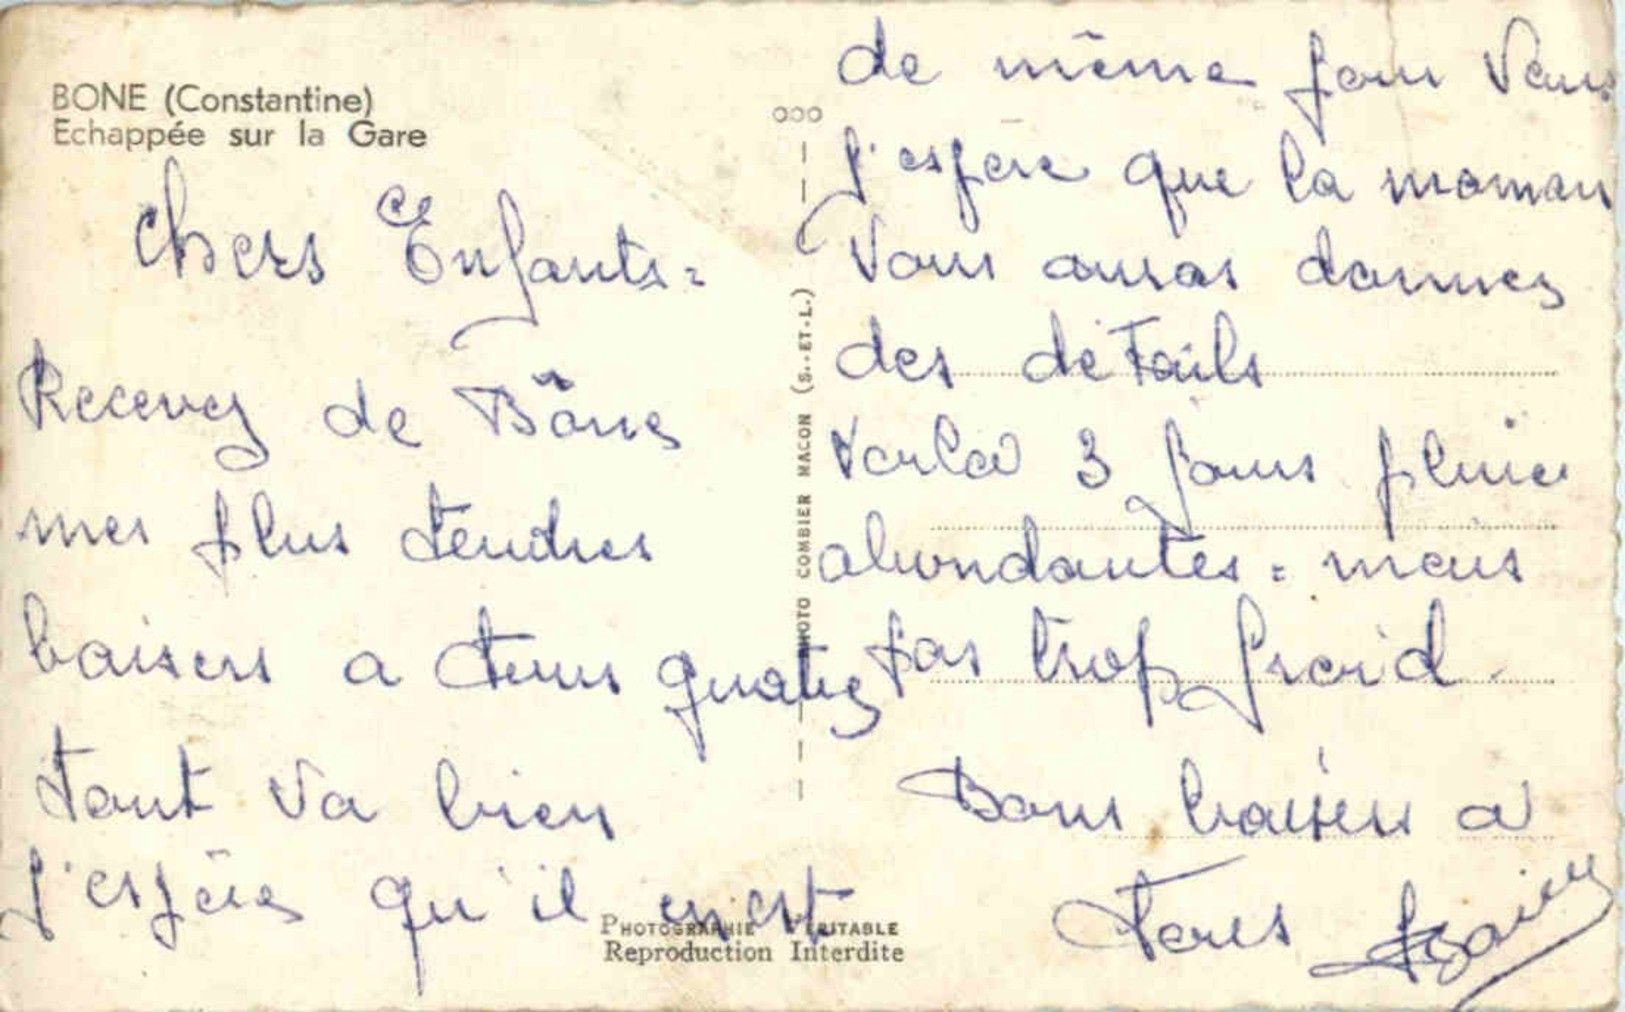 BONE (Constantine)
Echappée sur la Gare
Chers Enfants =
Recevez de Bône
mes plus tendres
baisers a tous quatre
tout va bien
J'espère qu'il en est
PHOTOGRAPHIE VÉRITABLE
Reproduction Interdite
PHOTO COMBIER MACON (S.-ET-L.)
de même pour Vous
J'espere que la maman
Vous auras donnez
des détails
Voila 3 jours pluie
abondantes = mais
pas trop froid.
Bons baisers a
tous